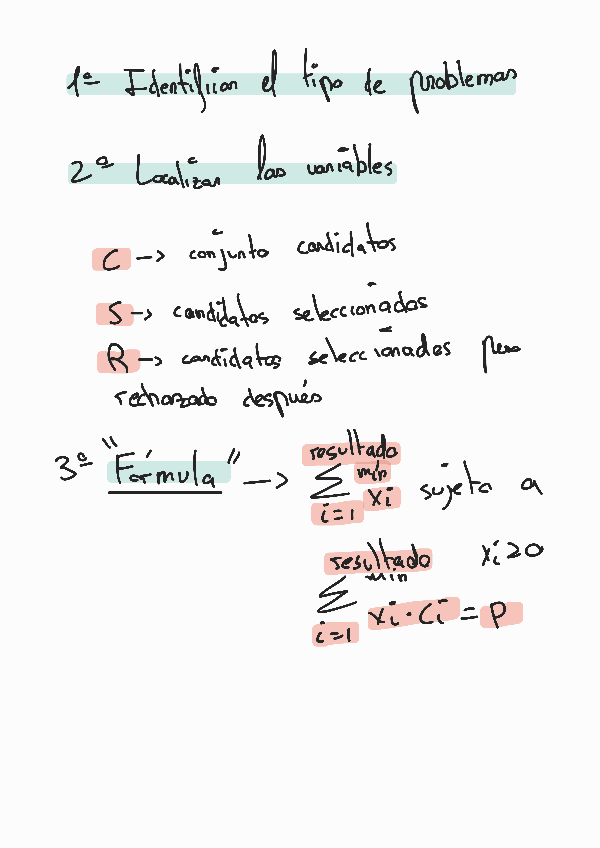 1º Identificar el tipo de problemas
2º Localizar las variables
C → conjunto candidatos
S → candidatos seleccionados
R → candidatos seleccionados pero
rechazado después
3º "Fórmula" → resultado ∑ i=1 min xi sujeto a
xi ≥ 0
resultado ∑ i=1 min xi · Ci = P